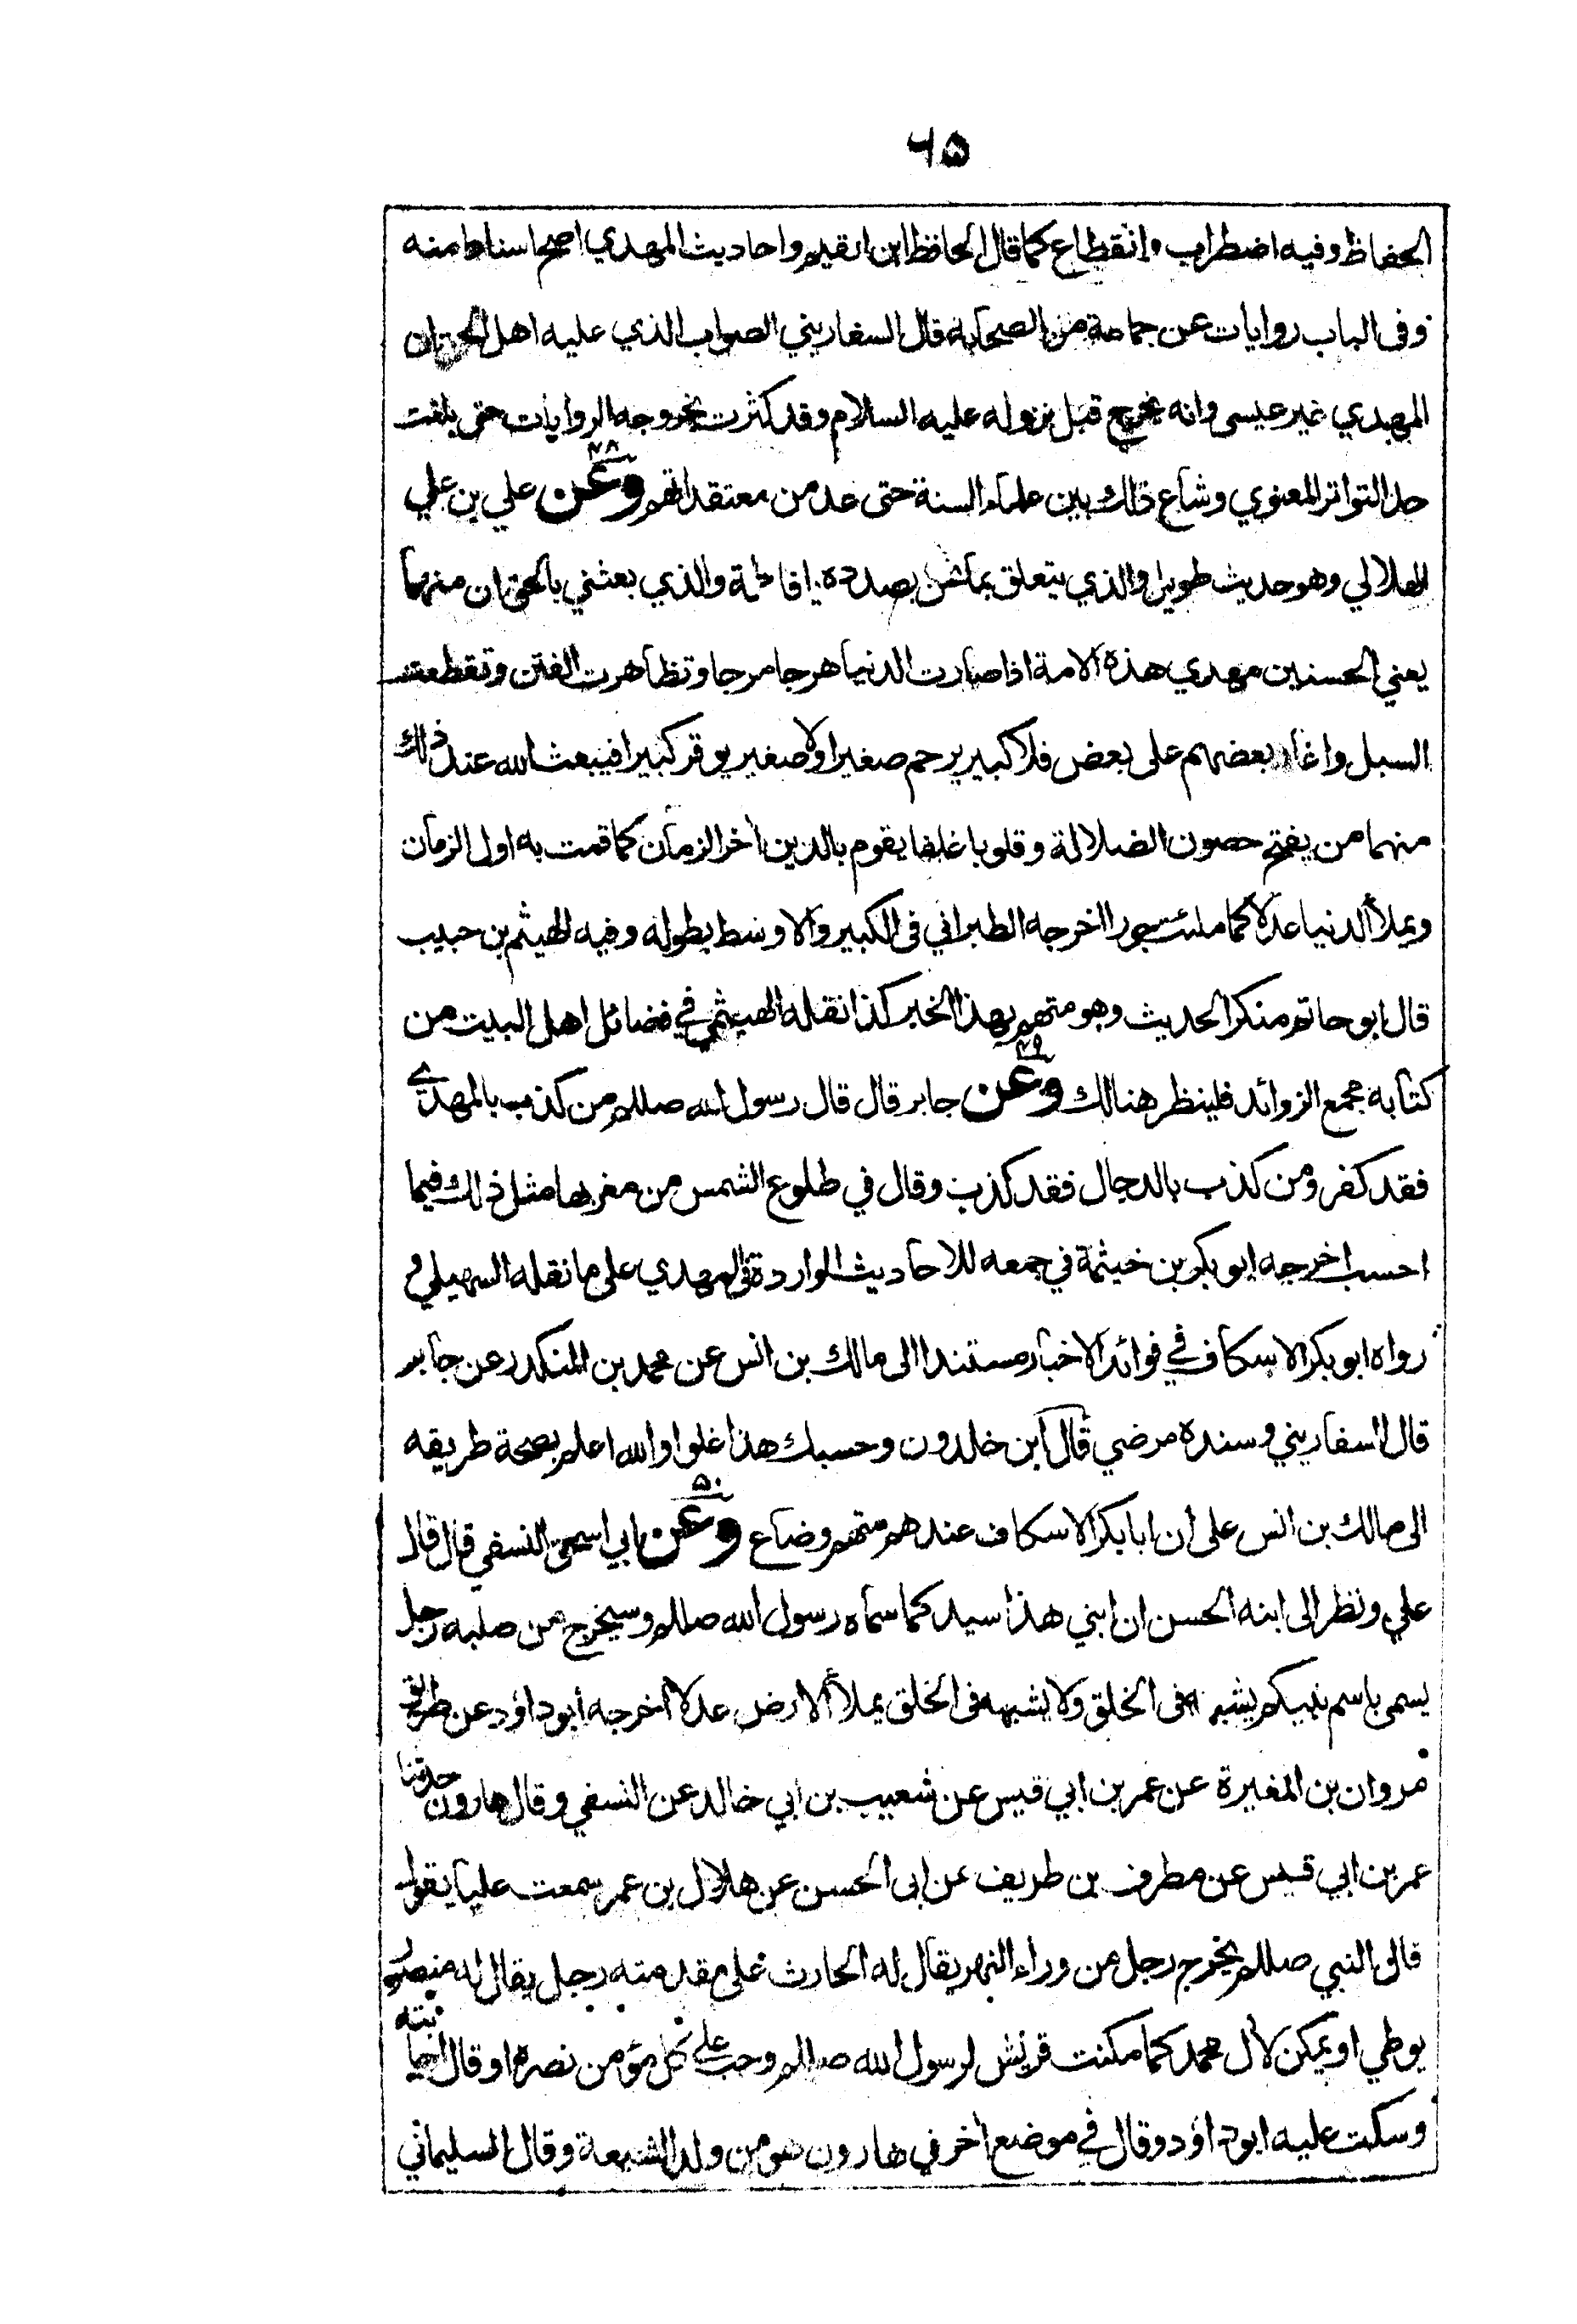 ٦٥
الحفاظ وفيه اضطراب وانقطاع كما قال الحافظ ابن القيم واحاديث المهدي اصح اسنادا منه
وفى الباب روايات عن جماعة من الصحابة قال السفاريني الصواب الذي عليه اهل الحق ان
المهدي غير عيسى وانه يخرج قبل نزوله عليه السلام وقد كثرت بخروجه الروايات حتى بلغت
حد التواتر المعنوي وشاع ذلك بين علماء السنة حتى عد من معتقداتهم ٤٨ وعن علي بن علي
الهلالي وهو حديث طويل والذي يتعلق بما نحن بصدده يا فاطمة والذي بعثني بالحق ان منهما
يعني الحسنين مهدي هذه الامة اذا صارت الدنيا هرجا مرجا وتظاهرت الفتن وتقطعت
السبل واغار بعضهم على بعض فلا كبير يرحم صغيرا ولا صغير يوقر كبيرا فيبعث الله عند ذلك
منهما من يفتح حصون الضلالة وقلوبا غلفا يقوم بالدين أخر الزمان كما قمت به اول الزمان
ويملأ الدنيا عدلا كما ملئت جورا اخرجه الطبراني فى الكبير والاوسط بطوله وفيه الهيثم بن حبيب
قال ابو حاتم منكر الحديث وهو متهم بهذا الخبر كذا نقله الهيثمي في فضائل اهل البيت من
كتابه مجمع الزوائد فلينظر هنالك ٤٩ وعن جابر قال قال رسول الله صللم من كذب بالمهدي
فقد كفر ومن كذب بالدجال فقد كذب وقال في طلوع الشمس من مغربها مثل ذلك فيما
احسب اخرجه ابو بكر بن خيثمة في جمعه للاحاديث الواردة فى المهدي على ما نقله السهيلي و
رواه ابو بكر الاسكاف في فوائد الاخبار مستندا الى مالك بن انس عن محمد بن المنكدر عن جابر
قال السفاريني وسنده مرضي قال ابن خلدون وحسبك هذا غلوا والله اعلم بصحة طريقه
الى مالك بن انس على ان ابا بكر الاسكاف عندهم متهم وضاع ٥٠ وعن ابي اسحق النسفي قال قال
علي ونظر الى ابنه الحسن ان ابني هذا سيد كما سماه رسول الله صللم وسيخرج من صلبه رجل
يسمى باسم نبيكم يشبهه فى الخلق ولا يشبهه فى الخلق يملأ الارض عدلا اخرجه أبو داؤد عن طريق
مروان بن المغيرة عن عمر بن ابي قيس عن شعيب بن ابي خالد عن النسفي وقال هارون حدثنا
عمر بن ابي قيس عن مطرف بن طريف عن ابى الحسن عن هلال بن عمر سمعت عليا يقول
قال النبي صللم يخرج رجل من وراء النهر يقال له الحارث على مقدمته رجل يقال له منصور
يوطي او يمكن لأل محمد كما مكنت قريش لرسول الله صللم وجب على كل مؤمن نصره او قال اجابته
وسكت عليه ابو داؤد وقال في موضع أخر في هارون هو من ولد الشيعة وقال السليماني